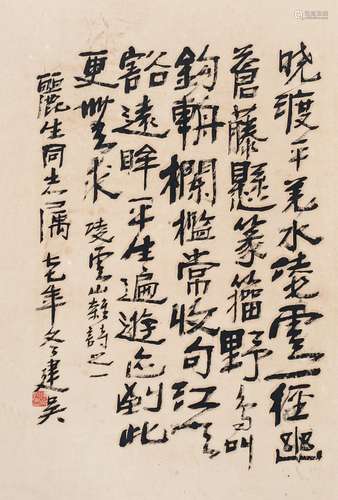 晓渡平羌水凌雲一徑幽
蒼藤懸篆籀野鳥叫
鉤輈欄檻常收句江天
豁遠眸平生遍遊到此
更無求 凌雲山雜詩之一
麗生同志属 七九年冬建吴